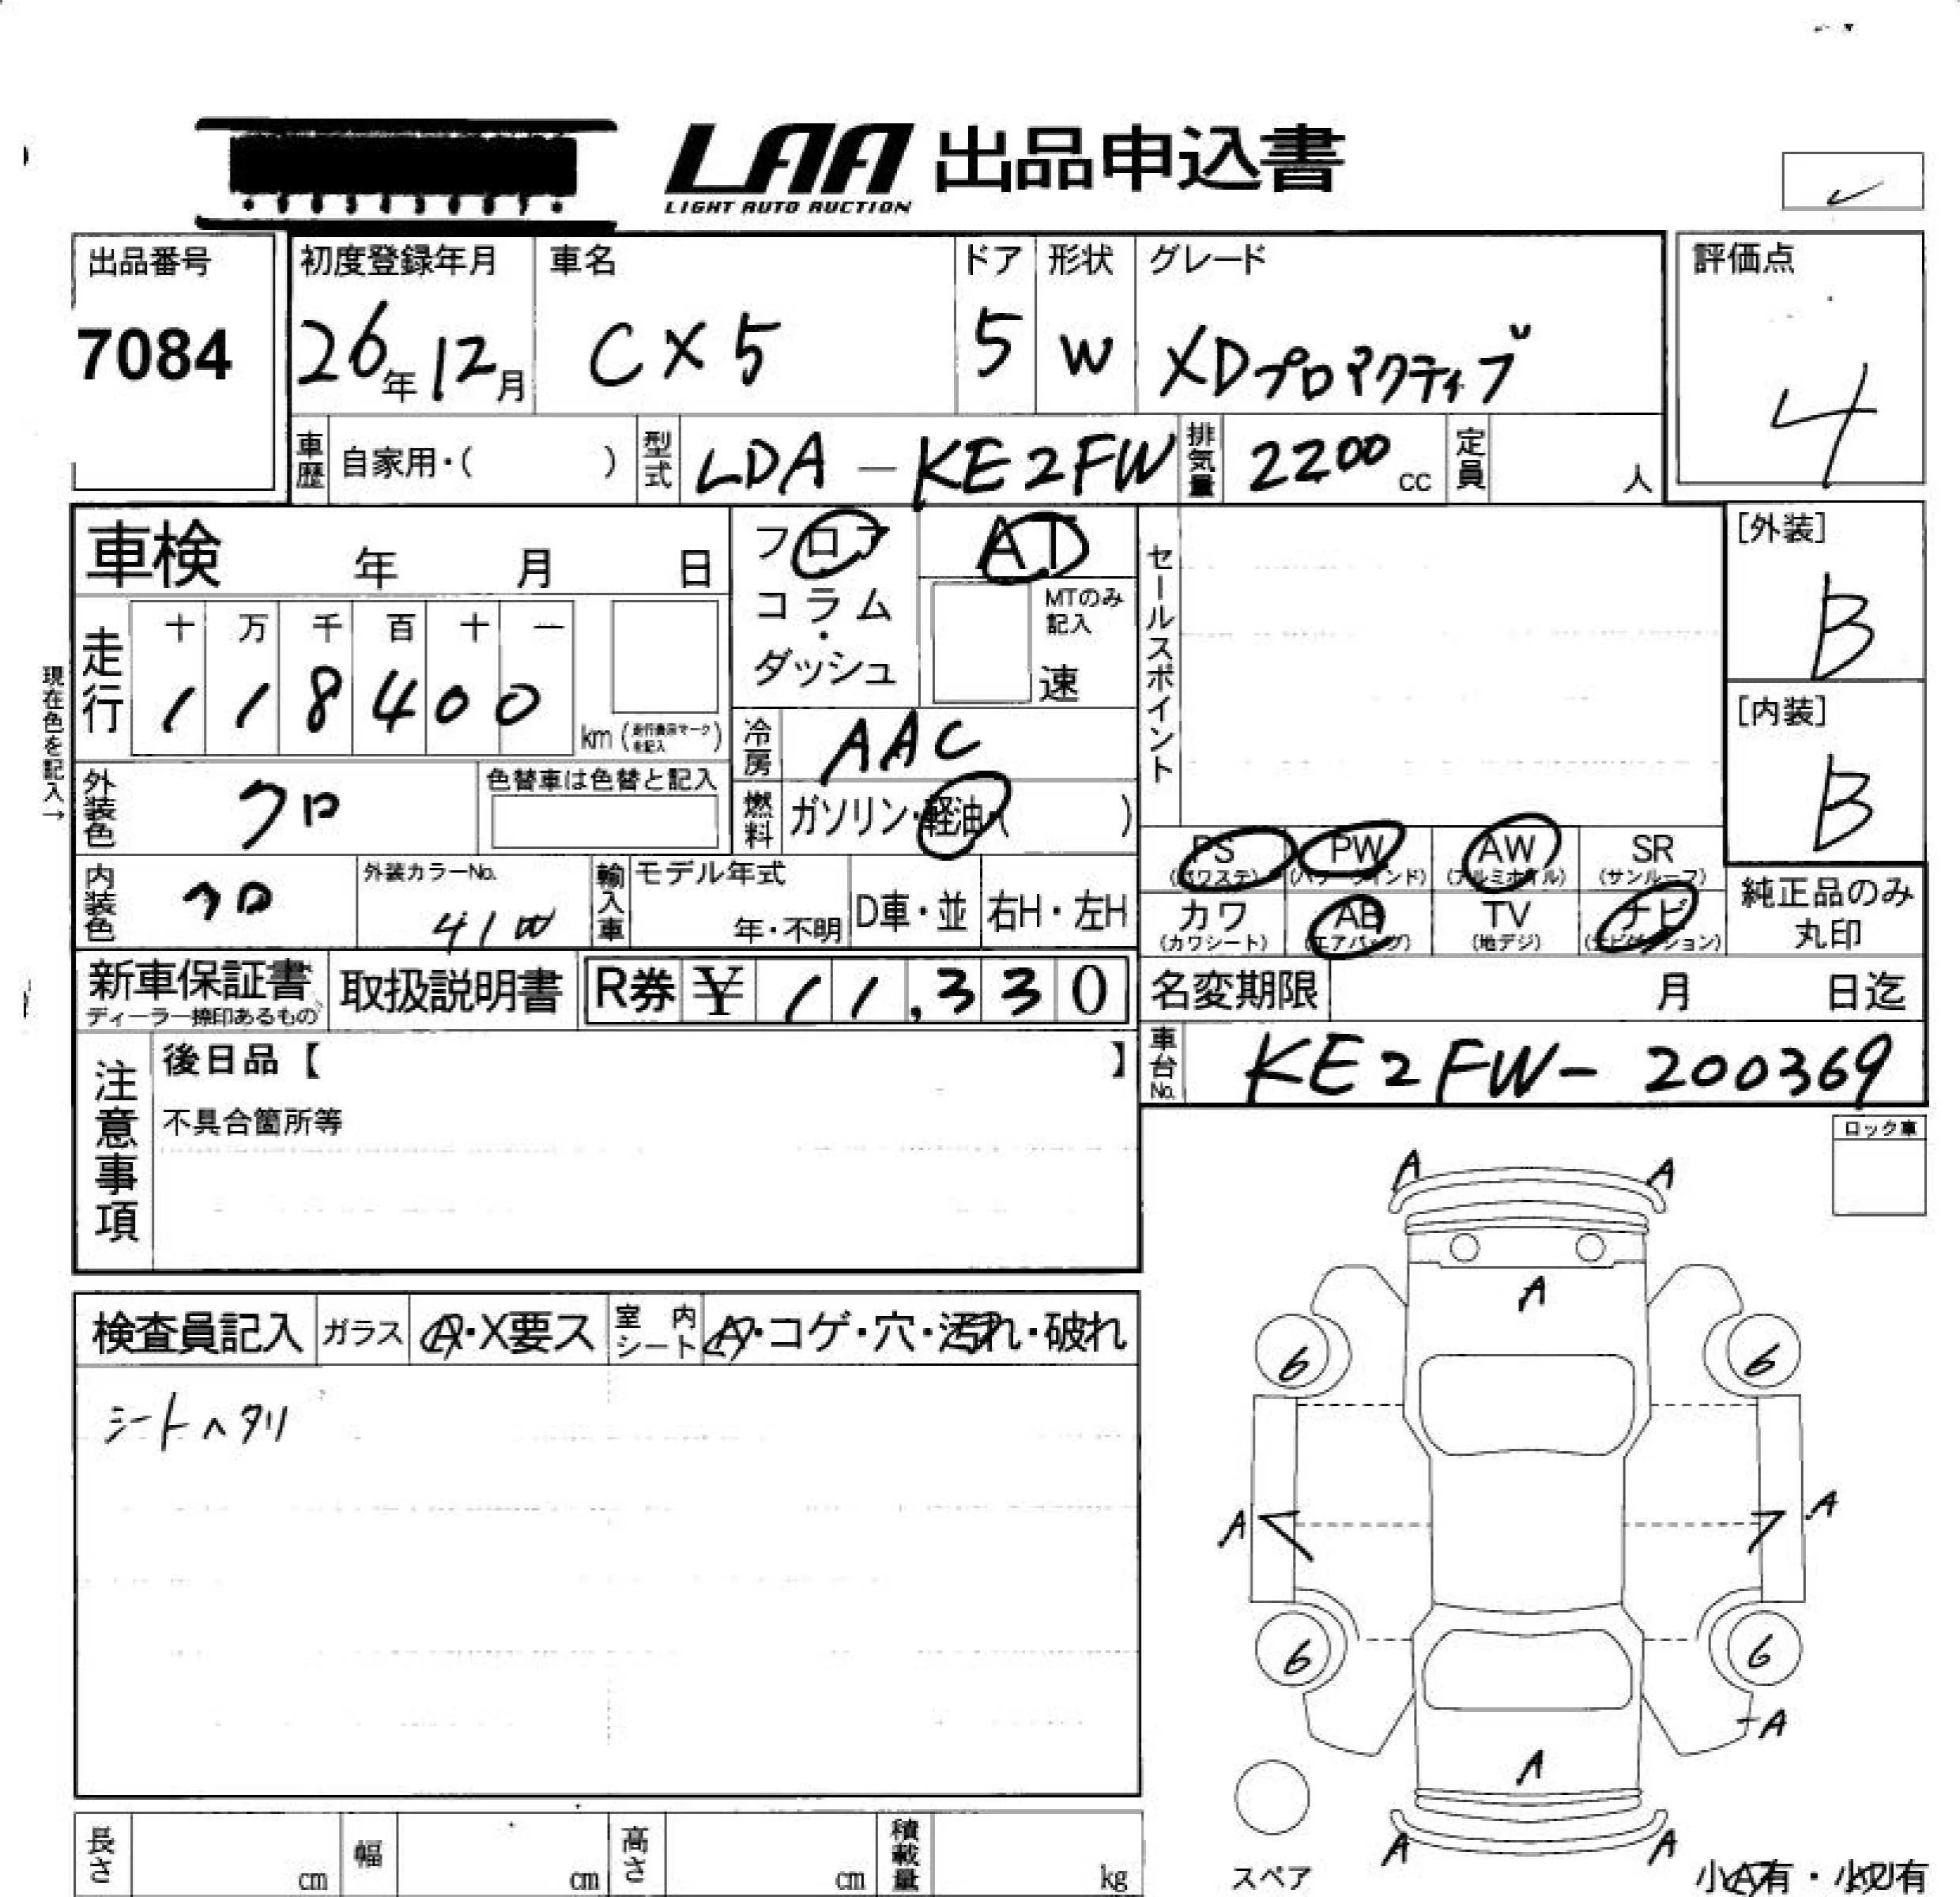 LAA 出品申込書
LIGHT AUTO AUCTION
出品番号
7084
初度登録年月
26年12月
車名
CX5
ドア
5
形状
W
グレード
XDプロアクティブ
評価点
4
車歴 自家用・( )
型式 LDA-KE2FW
排気量 2200 cc
定員 人
車検 年 月 日
現在色を記入→
走行
十 万 千 百 十 一
1 1 8 4 0 0
km (走行表示マークを記入)
フロア
コラム
・
ダッシュ
AT
MTのみ記入
速
冷房 AAC
燃料 ガソリン・軽油・( )
セールスポイント
[外装]
B
[内装]
B
外装色 クロ
色替車は色替と記入
内装色 クロ
外装カラーNo.
41W
輸入車
モデル年式
年・不明
D車・並
右H・左H
PS
(パワステ)
PW
(パワーウインド)
AW
(アルミホイル)
SR
(サンルーフ)
カワ
(カワシート)
AB
(エアバッグ)
TV
(地デジ)
ナビ
(ナビゲーション)
純正品のみ
丸印
新車保証書
ディーラー捺印あるもの
取扱説明書
R券 ¥ 11,330
名変期限 月 日迄
車台No. KE2FW-200369
注意事項
後日品【 】
不具合箇所等
ロック車
検査員記入
ガラス A・X要ス
室内シート A・コゲ・穴・汚れ・破れ
シートヘタリ
A A
A
6 6
A A
6 6
A
A
A A
スペア
小A有・小U有
長さ cm
幅 cm
高さ cm
積載量 kg